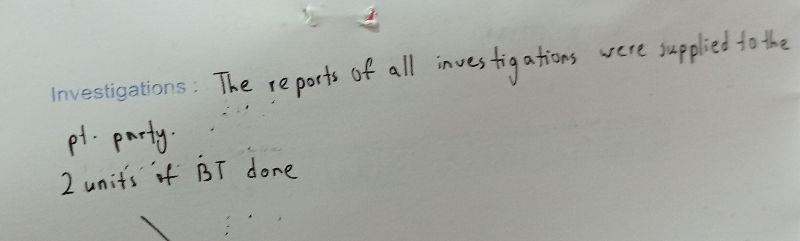 Investigations : The reports of all investigations were supplied to the
pt. party.
2 units of BT done